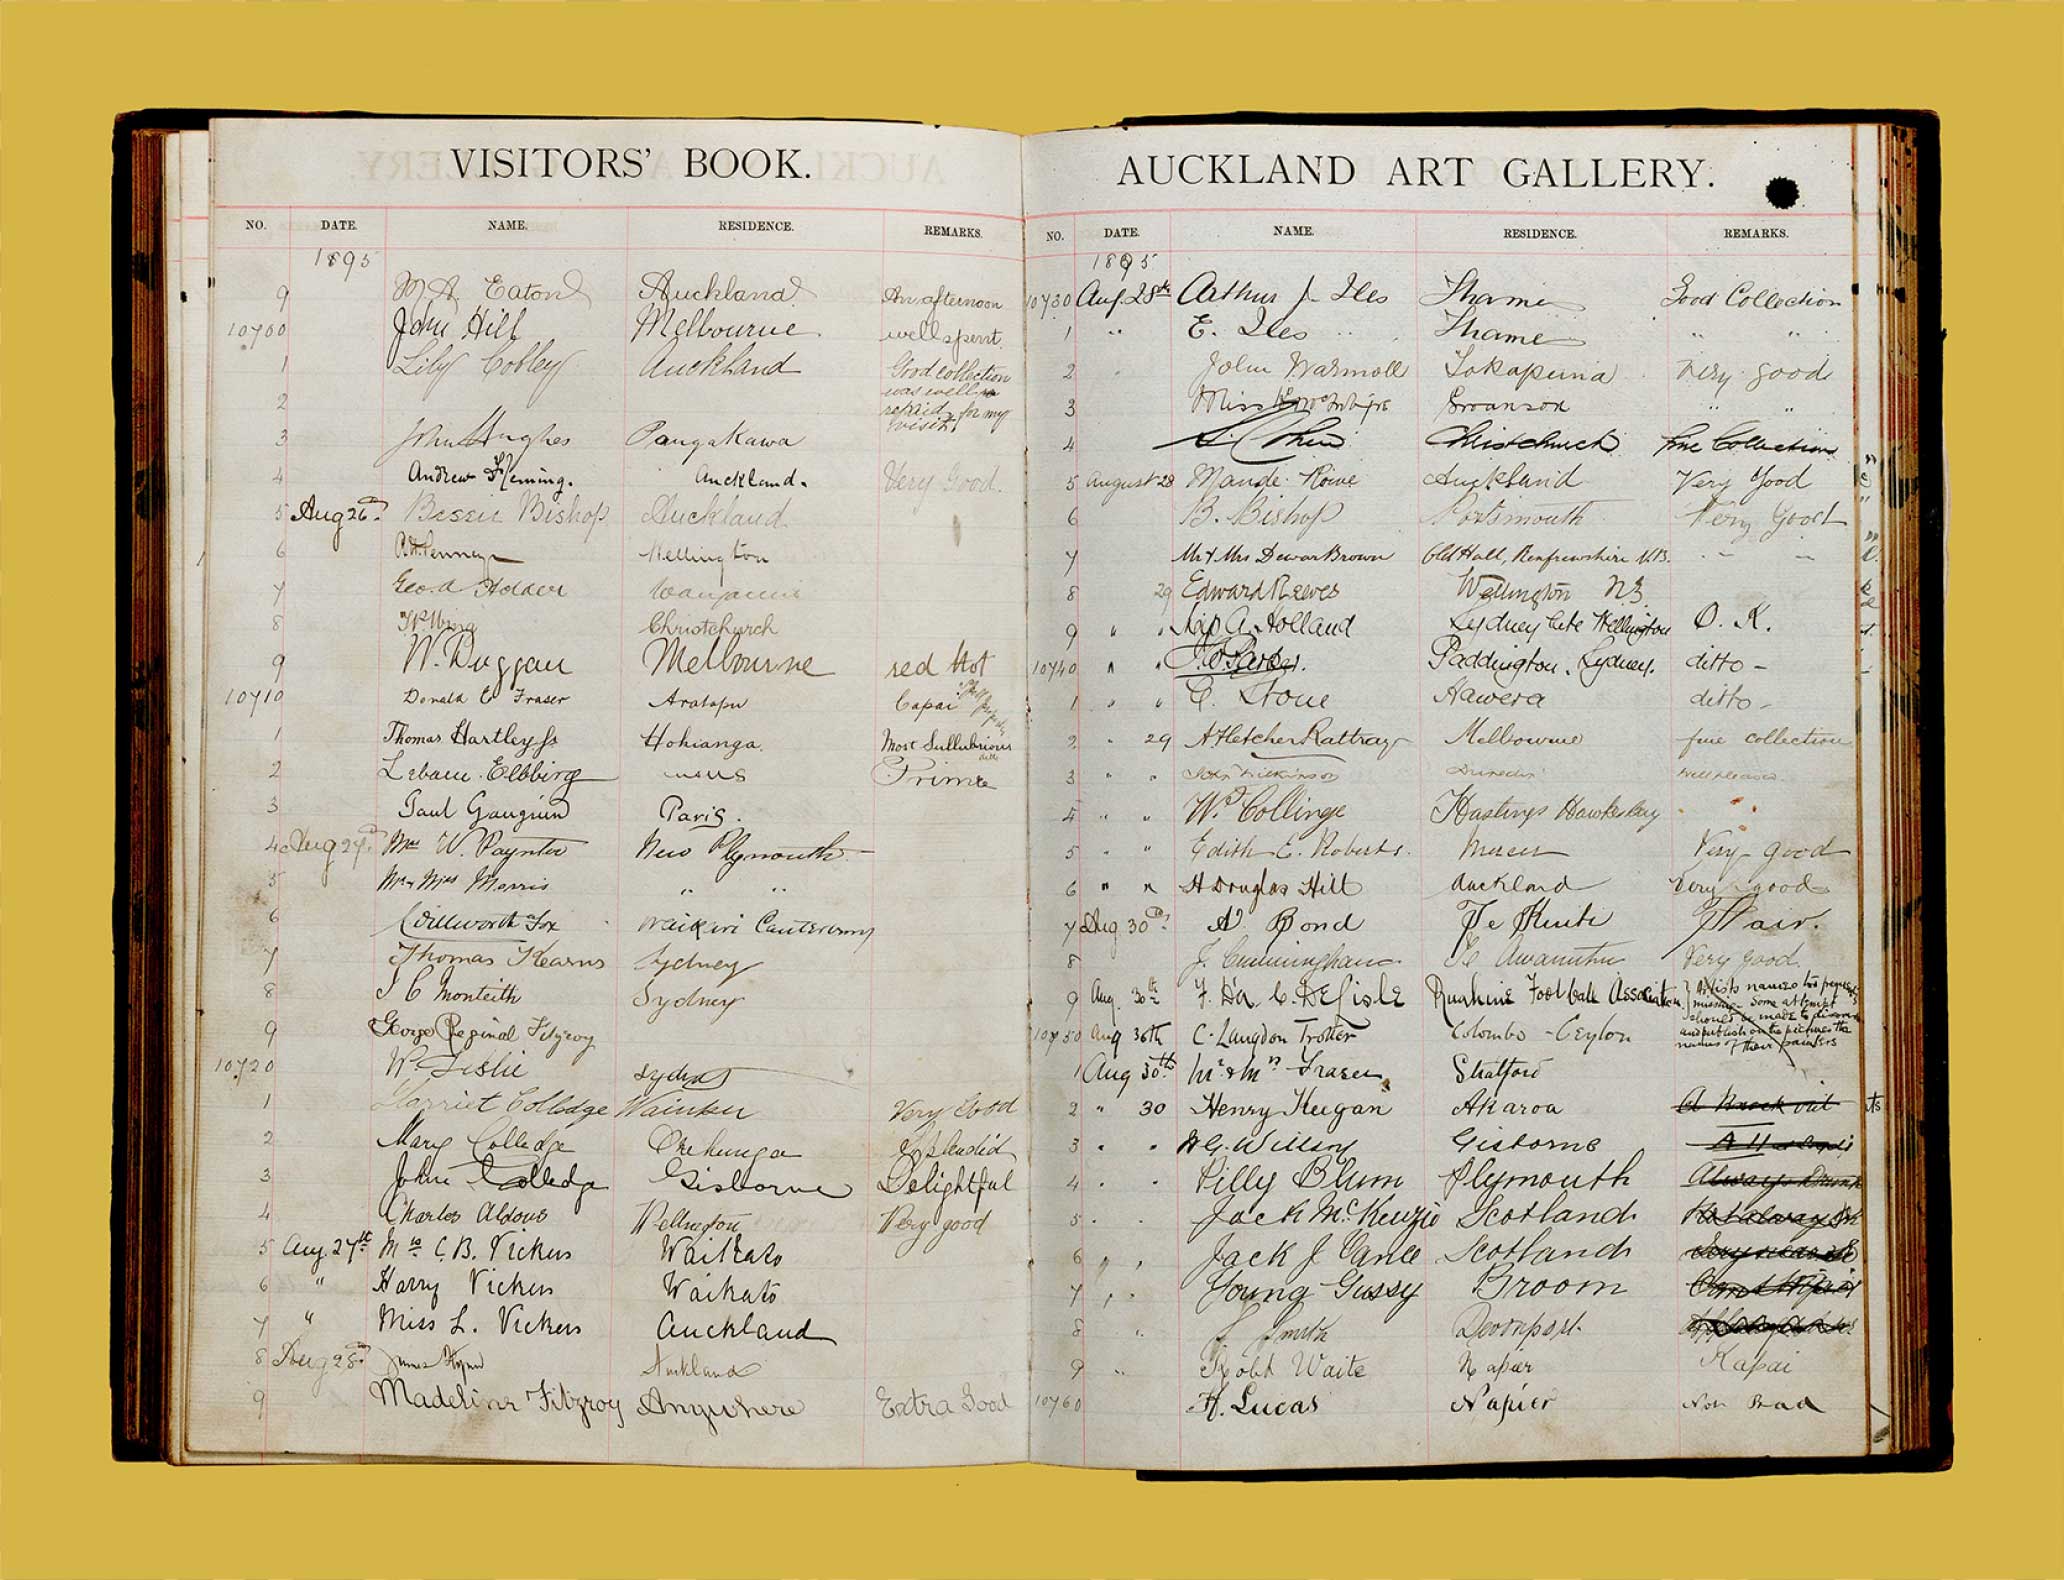 VISITORS' BOOK.
NO. DATE. NAME. RESIDENCE. REMARKS.
1895
9 M A Eaton Auckland An afternoon
10700 John Hill Melbourne well spent.
1 Lily Cobley Auckland Good collection
was well
2 repaid for my
visit
3 John Hughes Pangakawa
4 Andrew Fleming. Auckland. Very Good.
5 Aug 26th Bessie Bishop Auckland
6 Wellington
7 Geo. A Hodder Wanganui
8 Christchurch
9 W. Duggan Melbourne red Hot
10710 Donald C Fraser Aratapu Capai
1 Thomas Hartley Jr Hokianga. Most Sullubrious
2 Prima
3 Paul Gaugin Paris.
4 Aug 27th Mrs W. Paynter New Plymouth
5 Mr & Mrs Morris " "
6 Dillworth Fox Waikari Canterbury
7 Thomas Kearns Sydney
8 J C Monteith Sydney
9 George Reginal Fitzroy
10720 W. Leslie Sydney
1 Harriet Colledge Very Good
2 Mary Colledge Onehunga Splendid
3 John Colledge Gisborne Delightful
4 Charles Aldous Wellington Very good
5 Aug. 27th C. B. Vickers Waikato
6 " Harry Vickers Waikato
7 " Miss L. Vickers Auckland
8 Aug 28th James Auckland
9 Madeline Fitzroy Anywhere Extra Good
AUCKLAND ART GALLERY.
NO. DATE. NAME. RESIDENCE. REMARKS.
1895
10730 Aug. 28th Arthur J. Iles Thames Good Collection
1 " E. Iles Thames " "
2 " John Warmoll Takapuna Very good
3 Miss Swanson " "
4 Christchurch fine Collection
5 August 28 Maude Rowe Auckland Very Good
6 B. Bishop Portsmouth Very Good
7 Mr & Mrs Dewar Brown Old Hall, Renfrewshire N.B. " "
8 29 Edward Reeves Wellington NZ
9 " " A. Holland Sydney late Wellington O. K.
10740 " " Paddington. Sydney. ditto -
1 " " C. Stone Hawera ditto -
2 " 29 A Fletcher Rattray Melbourne fine collection
3 " " John Wilkinson Dunedin well pleased
4 " " Wm Collinge Hastings Hawkesbay
5 " " Edith E. Roberts. Mercer Very good
6 " " H Douglas Hill Auckland Very good
7 Aug 30th A. Bond Te Kuiti Fair.
8 J. Cunningham Te Awamutu Very good.
9 Aug. 30th F. D'A. C. De Lisle Ruahine Football Association Artists names too frequently
missing - some attempt
should be made to discover
10750 Aug 30th C. Langdon Trotter Colombo - Ceylon and publish on the pictures the
names of their painters
1 Aug 30th Mr & Mrs Fraser Stratford
2 " 30 Henry Keegan Akaroa A Knock out
3 " " Gisborne
4 " " Lilly Blum Plymouth Always Drunk
5 " " Jack McKenzie Scotland
6 " " Jack J Vance Scotland
7 " " Young Gussy Broom
8 " J Smith Devonport.
9 " Robt Waite Napier Kapai
10760 H. Lucas Napier Not Bad